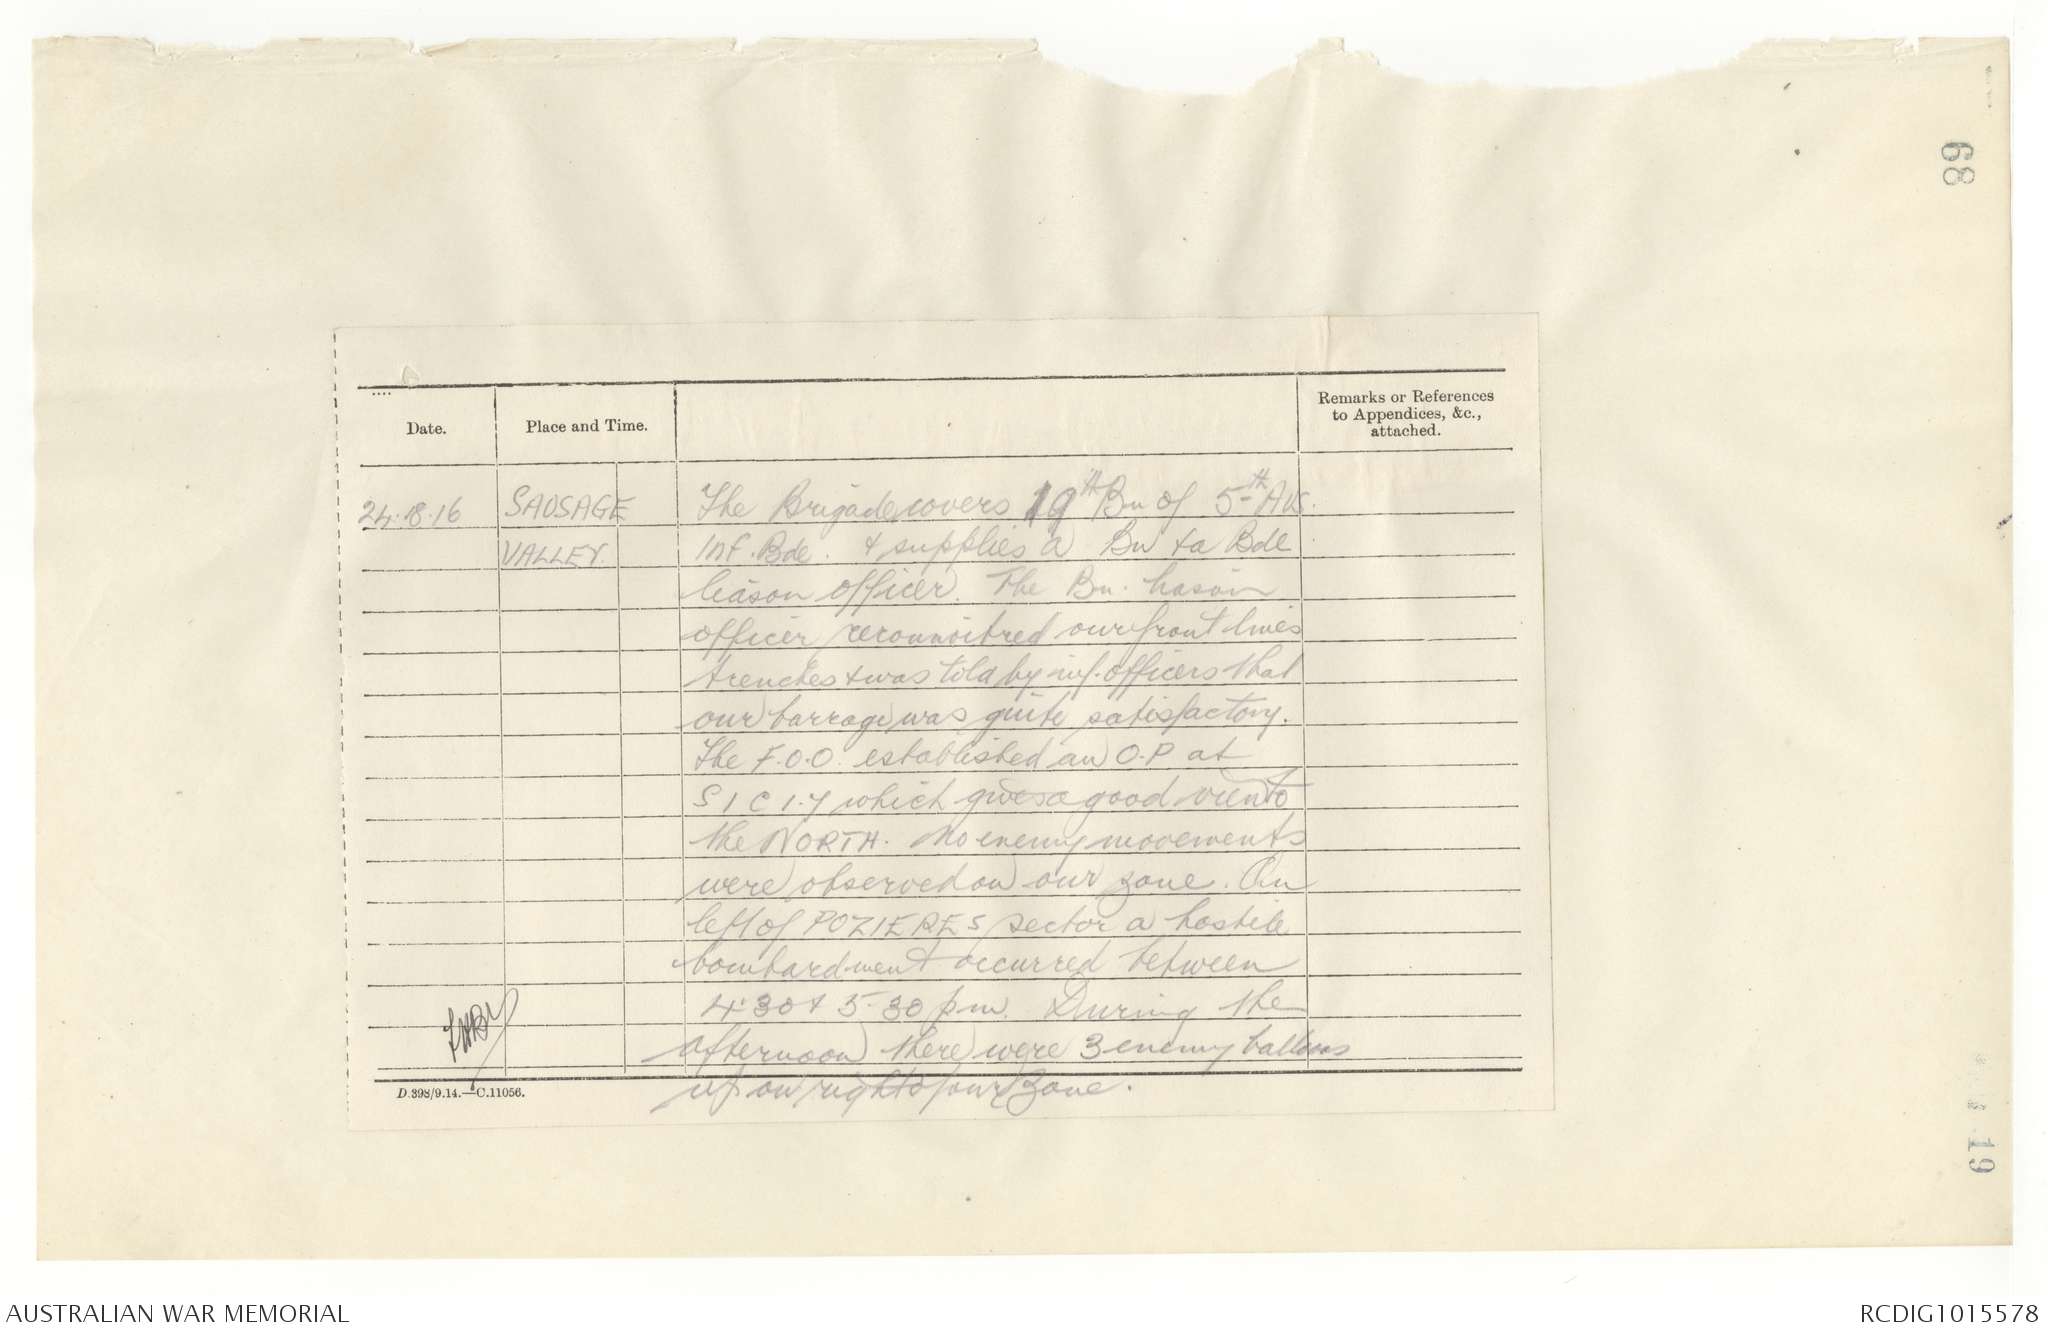 68
Date.
Place and Time.
Remarks or References
to Appendices, &c.,
attached.
24.8.16
SAUSAGE
VALLEY.
The Brigade covers 19th Bn of 5th Aus.
Inf. Bde. & supplies a Bn & a Bde
liason officer. The Bn. liason
officer reconnoitred our front lines
trenches & was told by inf. officers that
our barrage was quite satisfactory.
The F.O.O. established an O.P at
which gives a good view to
the NORTH. No enemy movements
were observed on our zone. On
left of POZIERES sector a hostile
bombardment occurred between
4.30 & 5-30 pm. During the
afternoon there were 3 enemy balloons
up on right of our zone.
D.398/9.14.—C.11056.
19
AUSTRALIAN WAR MEMORIAL
RCDIG1015578